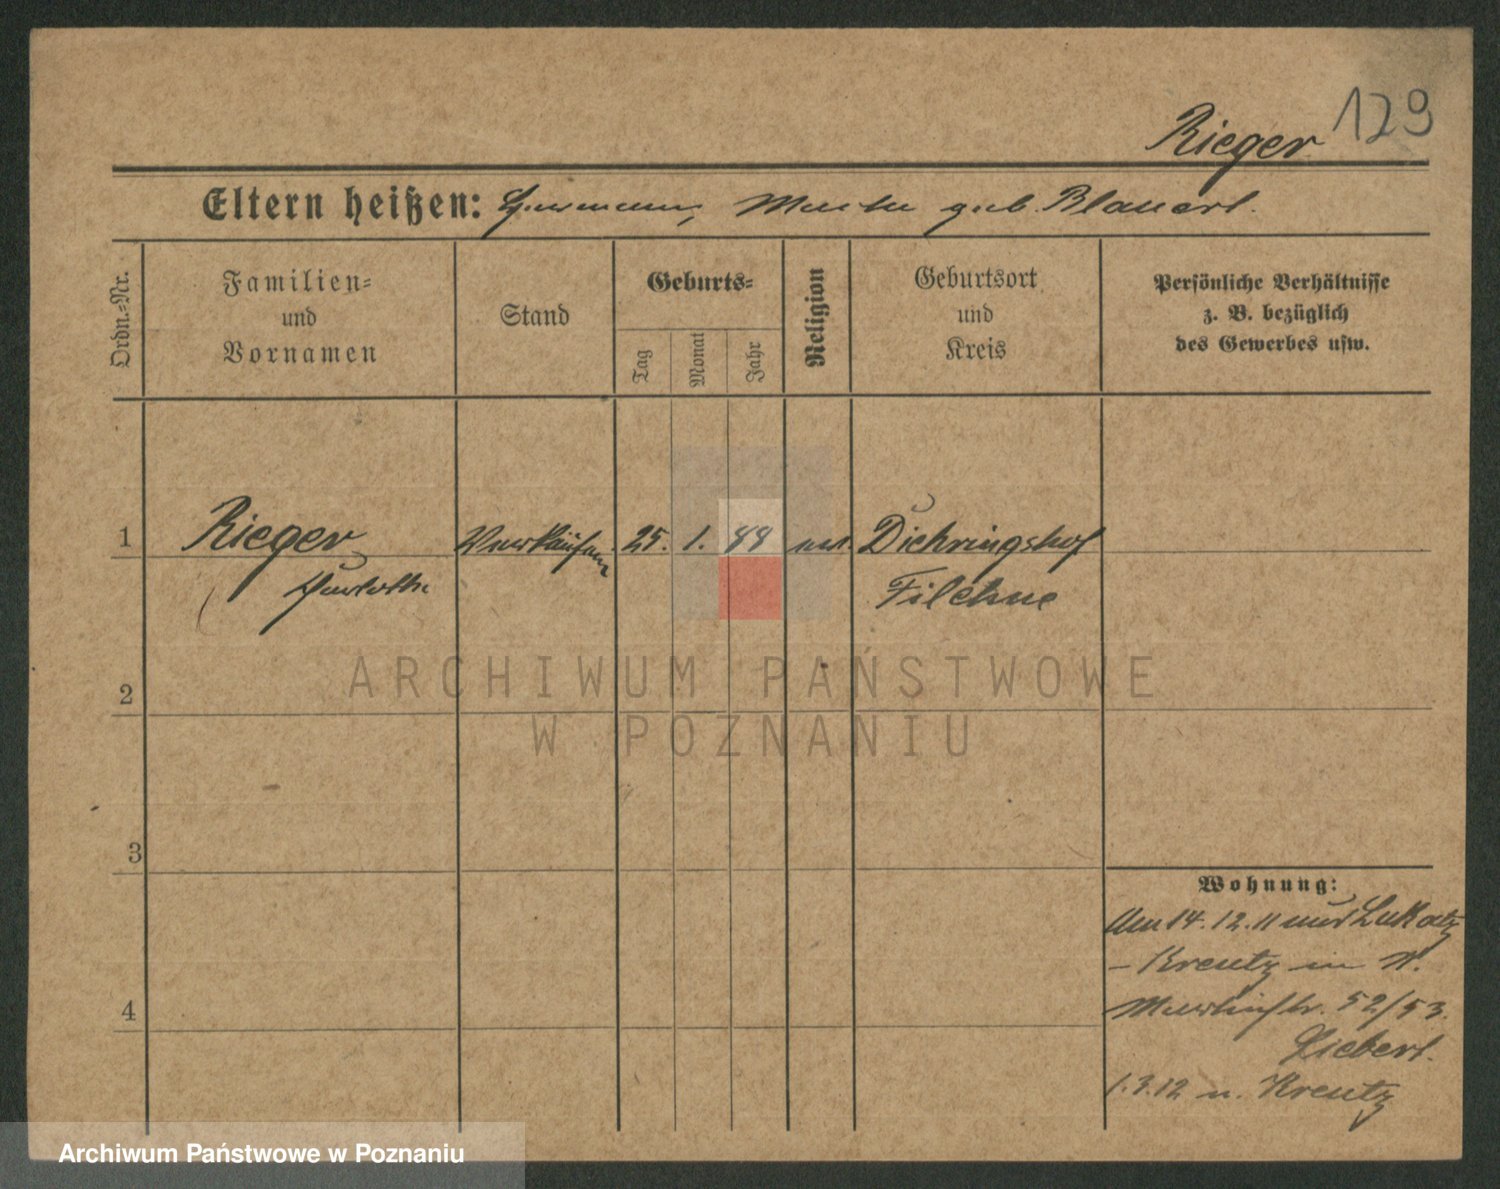 129
Rieger
Eltern heißen: Hermann, Martha geb. Blauert.
Ordn.-Nr.
Familien-
und
Vornamen
Stand
Geburts-
Tag
Monat
Jahr
Religion
Geburtsort
und
Kreis
Persönliche Verhältnisse
z. B. bezüglich
des Gewerbes usw.
1 Rieger Verkäuferin 25. 1. 88
Filehne
ARCHIWUM PAŃSTWOWE
2
W POZNANIU
3
Wohnung:
Am 14. 12. 11 Lukatz
- Kreutz in
4
52/53.
Liebert.
1.3.12 n. Kreutz
Archiwum Państwowe w Poznaniu